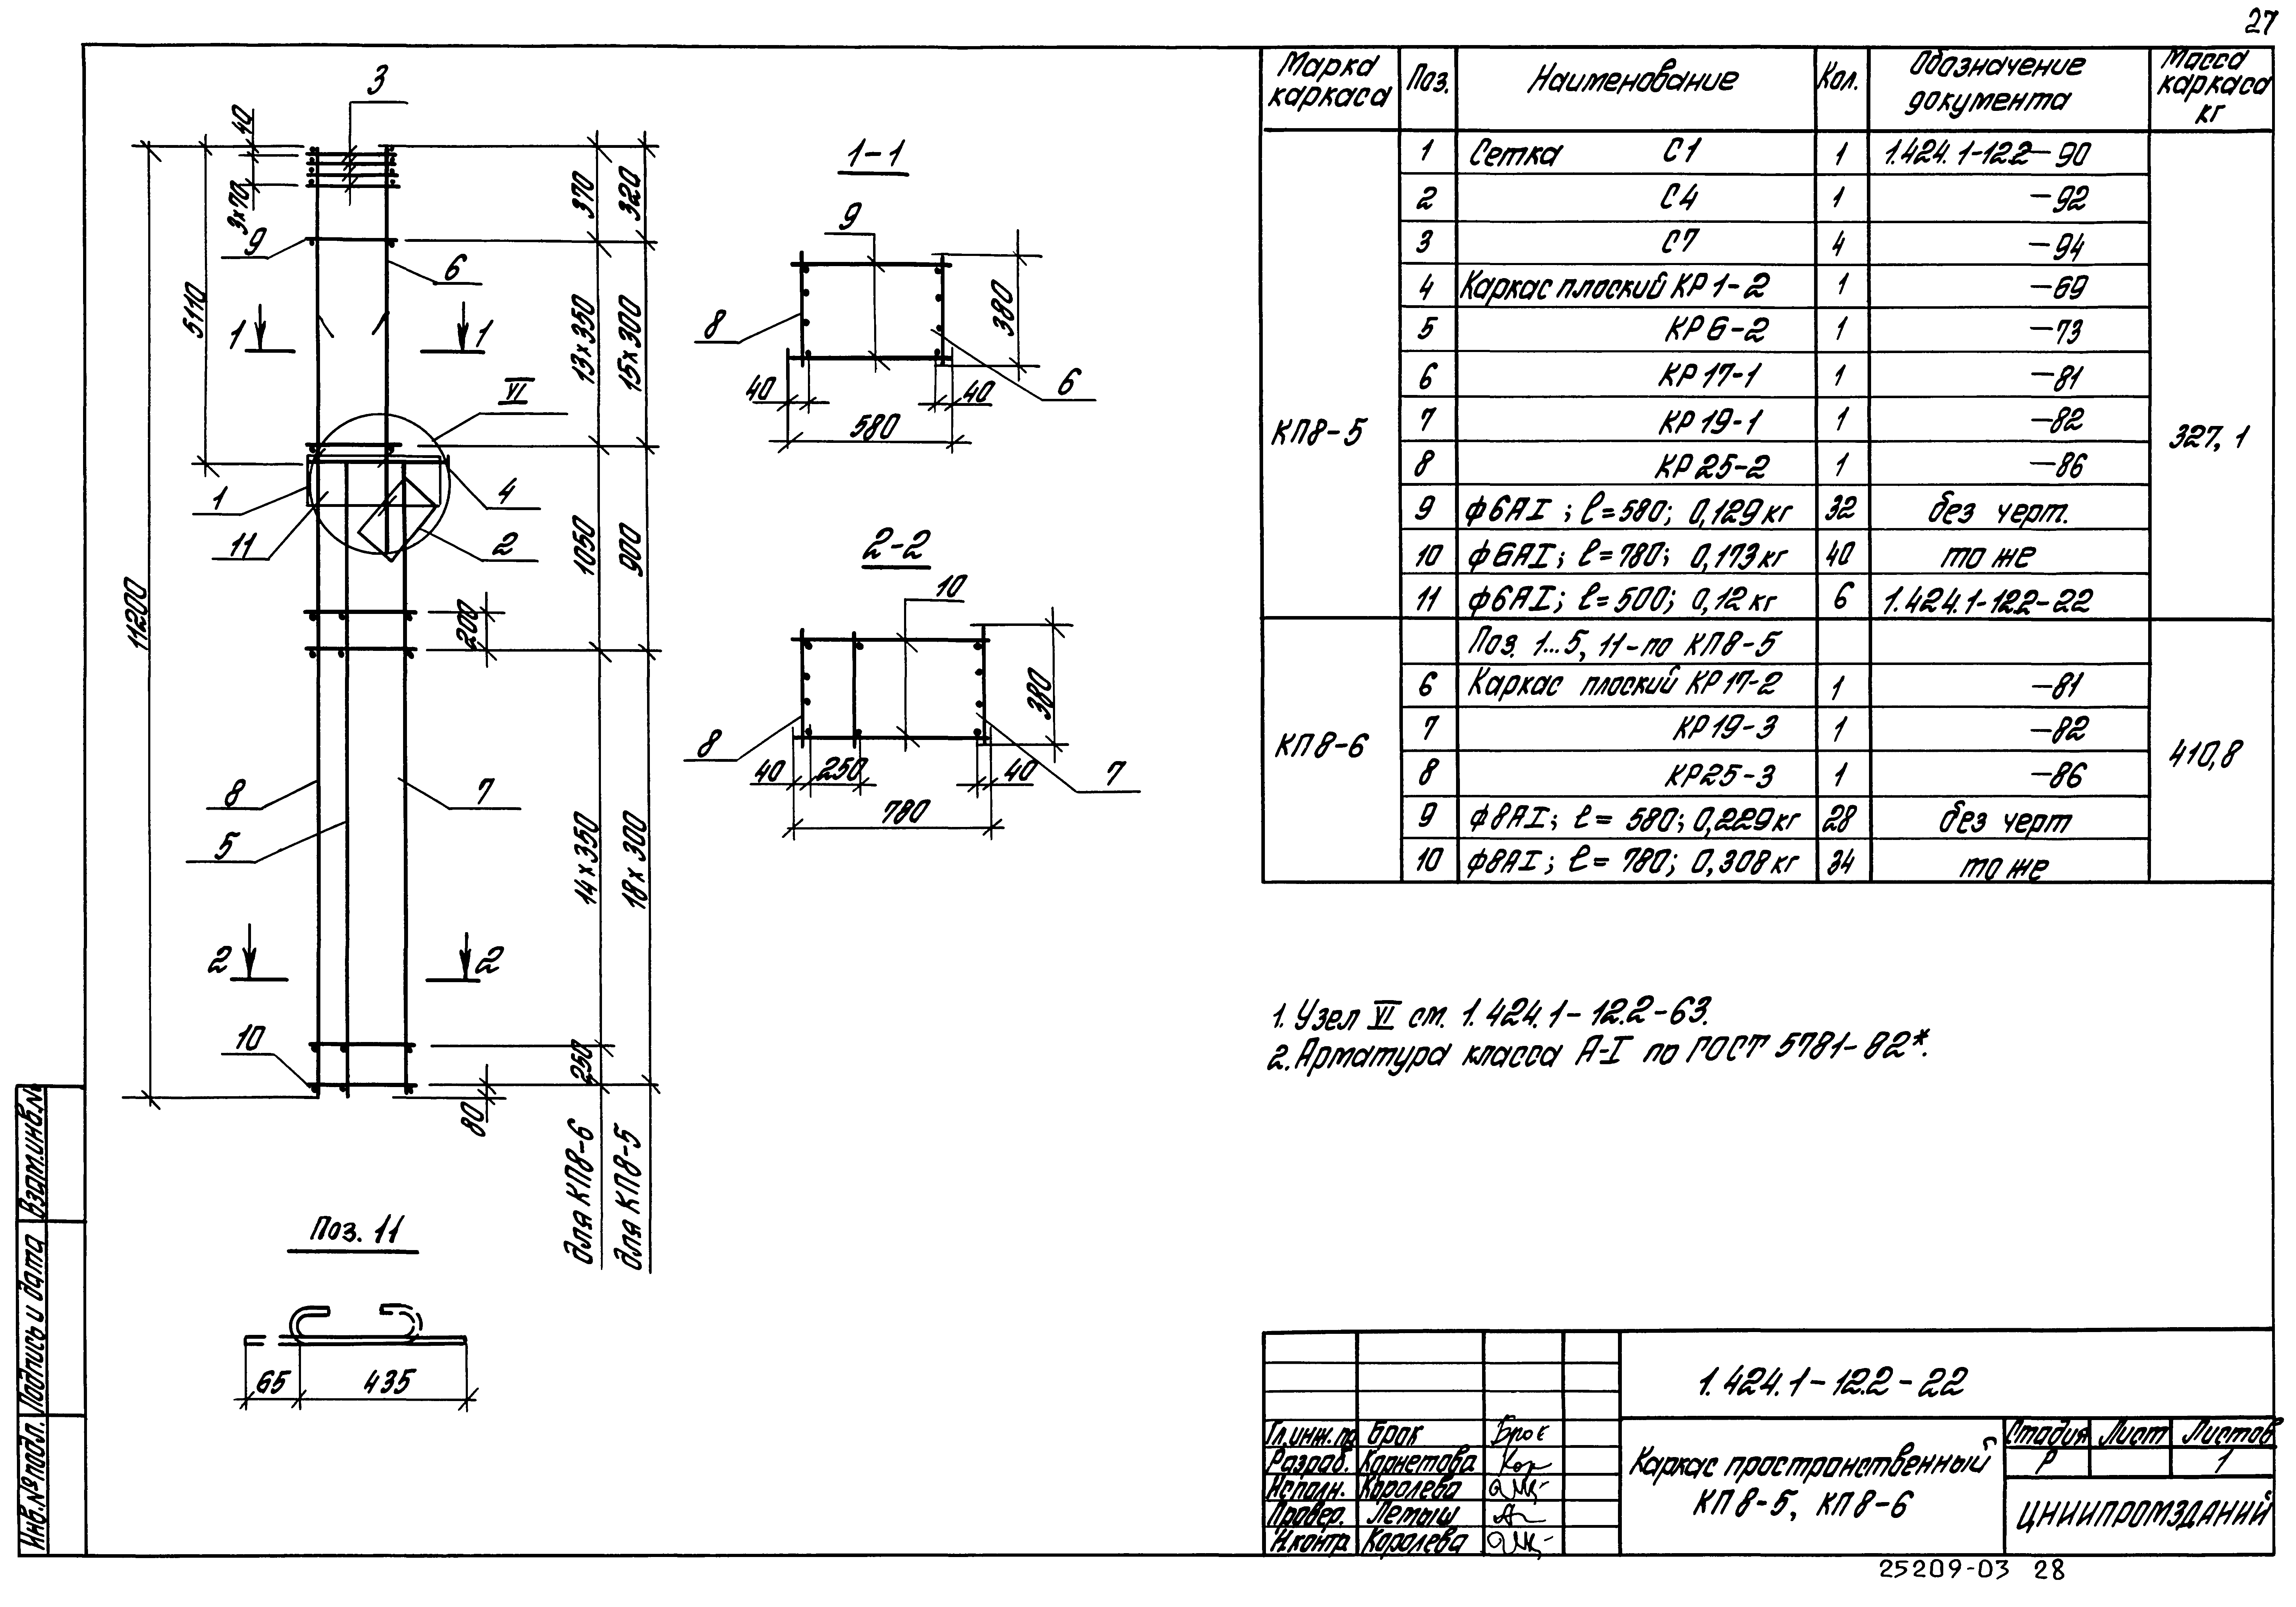 27
3
40
3×70
9
6
5110
1
1
VI
1
4
11
2
11200
200
8
7
5
2
2
10
80
370
320
13×350
15×300
1050
900
14×350
18×300
250
для КП8-6
для КП8-5
1-1
9
8
6
40
40
580
380
2-2
10
8
7
40
250
40
780
380
Поз. 11
65
435
Марка каркаса
Поз.
Наименование
Кол.
Обозначение документа
Масса каркаса кг
КП8-5
327,1
1 Сетка С1 1 1.424.1-12.2-90
2 С4 1 -92
3 С7 4 -94
4 Каркас плоский КР1-2 1 -69
5 КР6-2 1 -73
6 КР17-1 1 -81
7 КР19-1 1 -82
8 КР25-2 1 -86
9 ф6АI; l=580; 0,129кг 32 без черт.
10 ф6АI; l=780; 0,173кг 40 то же
11 ф6АI; l=500; 0,12кг 6 1.424.1-12.2-22
КП8-6
410,8
Поз. 1...5, 11-по КП8-5
6 Каркас плоский КР17-2 1 -81
7 КР19-3 1 -82
8 КР25-3 1 -86
9 ф8АI; l=580; 0,229кг 28 без черт
10 ф8АI; l=780; 0,308кг 34 то же
1. Узел VI см. 1.424.1-12.2-63.
2. Арматура класса А-I по ГОСТ 5781-82*.
1.424.1-12.2-22
Гл.инж.пр Брак
Разраб. Корнетова
Исполн. Королева
Провер. Летыш
Н.контр Королева
Каркас пространственный
КП8-5, КП8-6
Стадия Лист Листов
Р 1
ЦНИИПРОМЗДАНИЙ
25209-03 28
Взам.инв.№
Подпись и дата
Инв.№ подл.